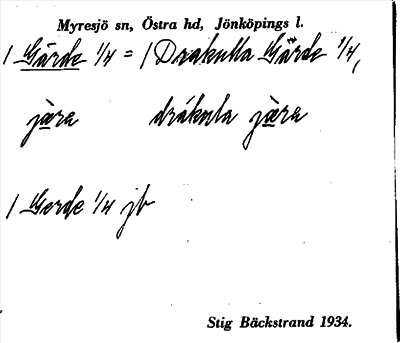 Myresjö sn, Östra hd, Jönköpings l.
/ Gärde 1/4 = / Drakulla Gärde 1/4,
jæra drákula jæra
/ Gerde 1/4 jb
Stig Bäckstrand 1934.